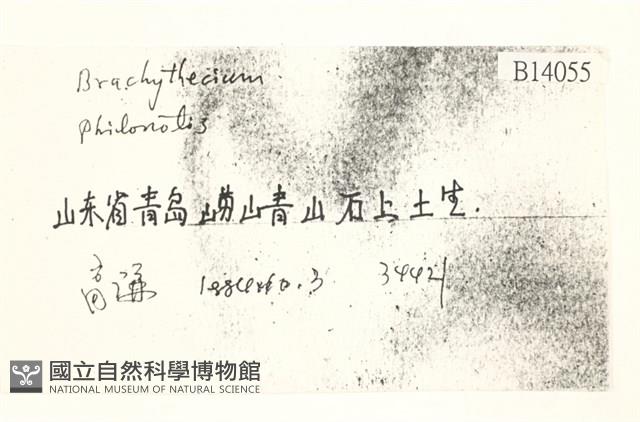 B14055
Brachythecium
philonotis
山东省青岛崂山青山石上土生.
高谦 34421
國立自然科學博物館
NATIONAL MUSEUM OF NATURAL SCIENCE